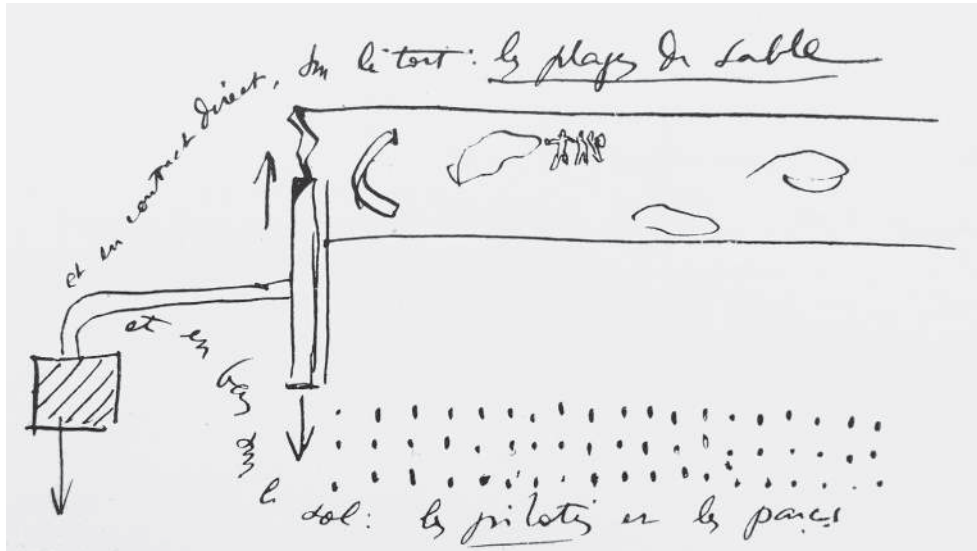 et en contact direct, sur le toit : les plages de sable
et en bas
le sol : les pilotis et les parcs